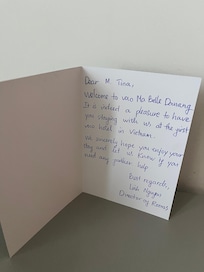 Dear M. Tina,
Welcome to voco Ma Belle Danang.
It is indeed a pleasure to have
you staying with us at the first
voco hotel in Vietnam.
We sincerely hope you enjoy your
stay and let us know if you
need any further help
Best regards,
Linh Nguyen
Director of Rooms